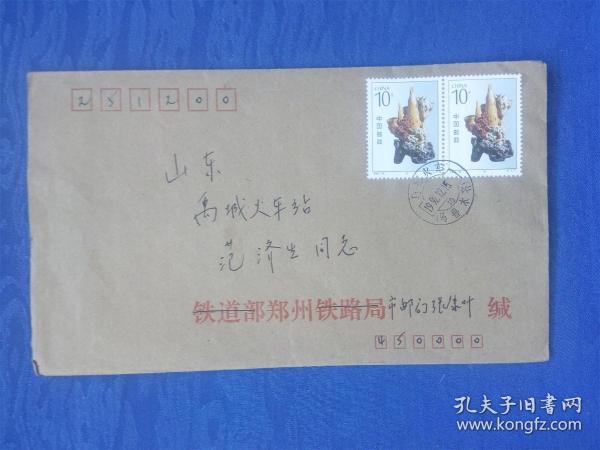 251200
CHINA
10分
中国邮政
CHINA
10分
中国邮政
山东
禹城火车站
范济生同志
铁道部郑州铁路局
市邮门张集叶 缄
450000
孔夫子旧书网
www.kongfz.com